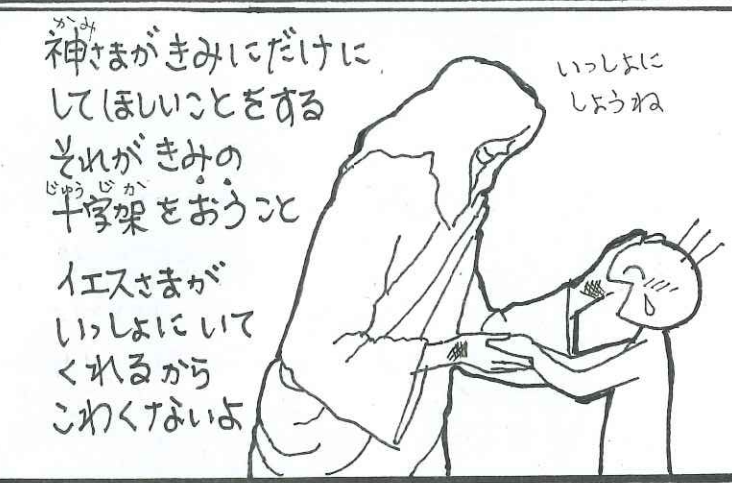 神さまがきみにだけに
してほしいことをする
それがきみの
十字架をおうこと
イエスさまが
いっしょにいて
くれるから
こわくないよ
いっしょに
しようね